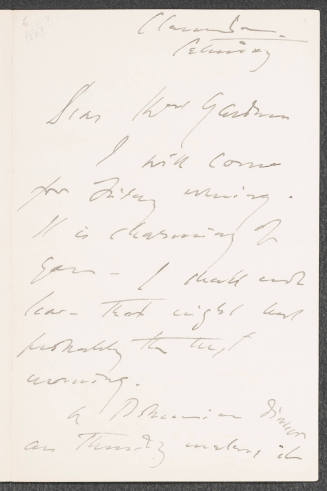 Dear Mrs Gardner
I will come
for Friday evening.
It is charming of
you - I shall not
leave that night but
probably the next
morning.
A Bohemian dinner
on Thursday makes it